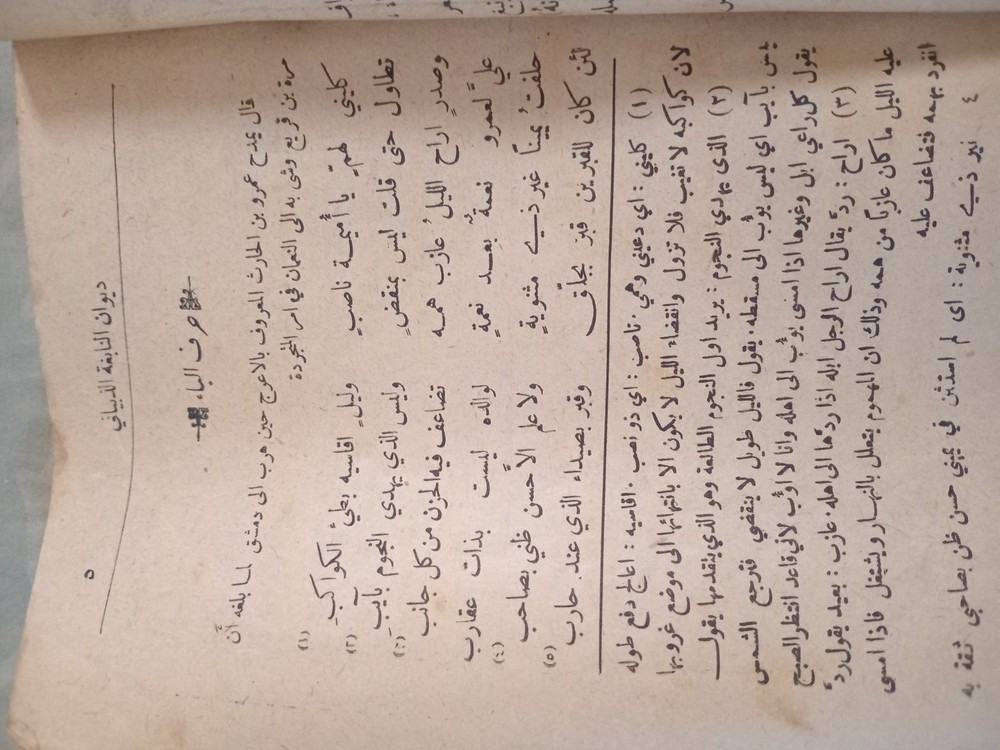 ٥
ديوان النابغة الذبياني
حرف الباء
قال يمدح عمرو بن الحارث المعروف بالاعرج حين هرب الى دمشق لما بلغه أن
مرة بن قريع وشى به الى النعمان في امر المتجردة
كليني لهمّ يا أميمة ناصبِ وليلٍ اقاسيه بطيءُ الكواكبِ (١)
تطاول حتى قلت ليس بمنقضٍ وليس الذي يهدي النجوم بآيبِ (٢)
وصدرٍ اراح الليلُ عازب همه تضاعف فيه الحزن من كل جانب (٣)
عليّ لعمرو نعمةٌ بعد نعمةٍ لوالده ليست بذات عقارب
حلفتُ يميناً غير ذي مثنويةٍ ولا علم الاَّ حسن ظني بصاحب (٤)
لئن كان للقبرين قبرٍ بجلّق وقبر بصيداء الذي عند حارب (٥)
(١) كليني : اي دعيني وهمي . ناصب : اي ذو نصب . اقاسيه : اعالج دفع طوله
لان كواكبه لا تغيب فلا تزول وانقضاء الليل لا يكون الا بانتهائها الى موضع غروبها
(٢) الذي يهدي النجوم : يريد اول النجوم الطالعة وهو الذي يتقدمها يقول
ليس بآيب اي ليس يؤب الى مسقطه . يقول فالليل طويل لا ينقضي فترجع الشمس
يقول كل راعي ابل وغيرها اذا امسى يؤب الى اهله وانا لا اؤب لاني قاعد انتظر الصبح
(٣) اراح : ردّ يقال اراح الرجل ابله اذا ردّها الى اهله . عازب : بعيد يقول ردّ
عليه الليل ما كان عازباً من همه وذلك ان المهموم يتعلل بالنهار ويشتغل فاذا امسى
انفرد بهمه فتضاعف عليه
٤ غير ذي مثنوية : اى لم استثن في يميني حسن ظن بصاحبي ثقة به